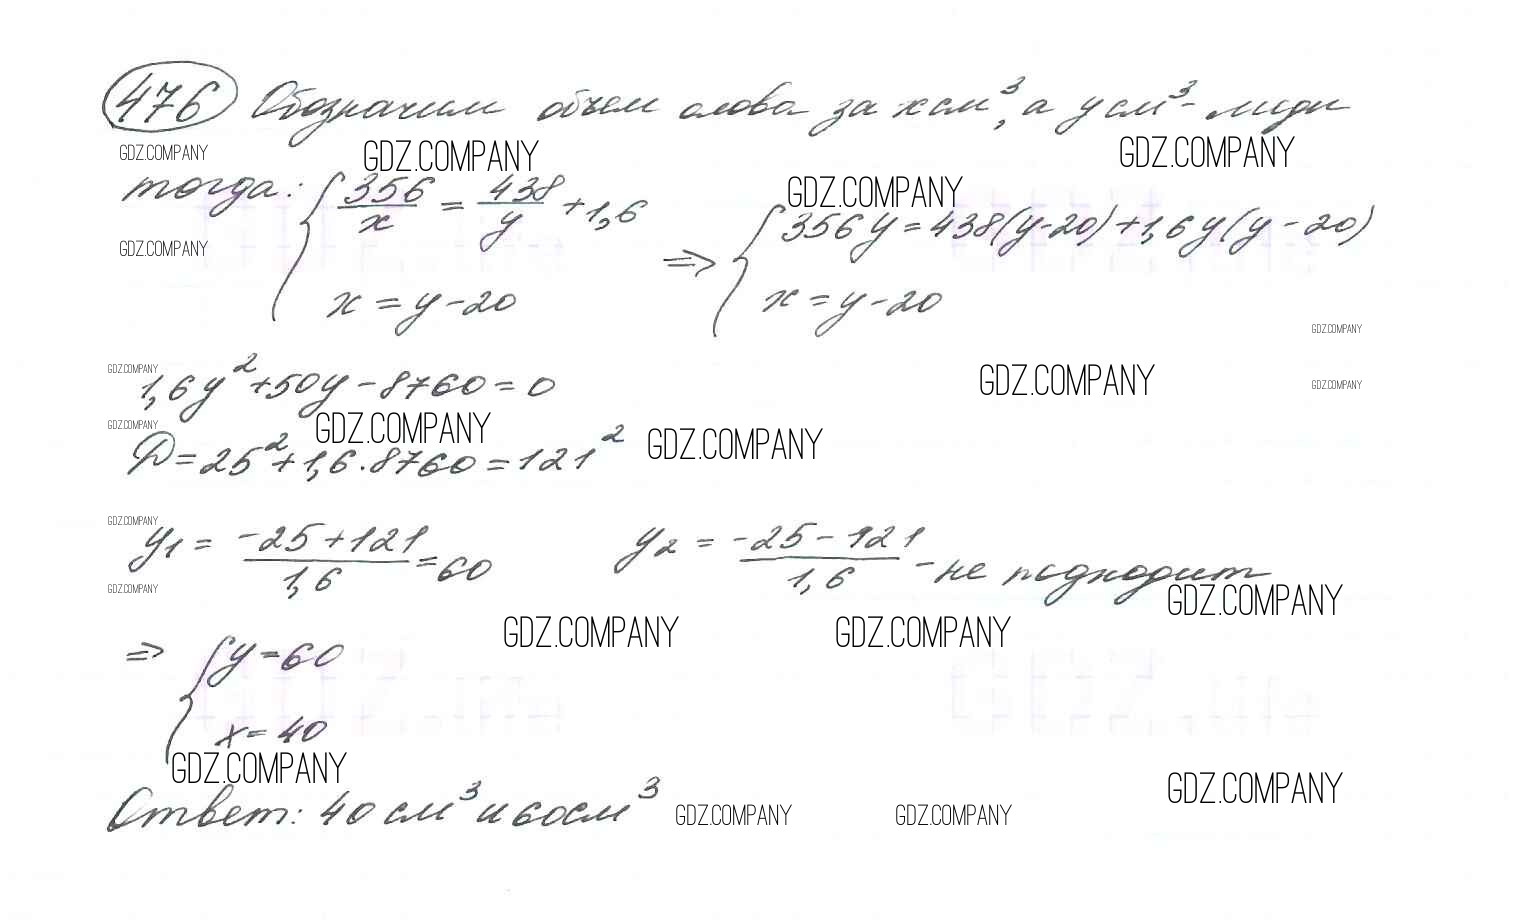 476 Обозначим объем олова за x см³, а y см³ - меди
GDZ.COMPANY GDZ.COMPANY GDZ.COMPANY
GDZ.COMPANY
тогда: { 356/x = 438/y + 1,6 => { 356y = 438(y-20) + 1,6y(y-20)
GDZ.COMPANY
x = y - 20 x = y - 20
GDZ.COMPANY
GDZ.COMPANY GDZ.COMPANY GDZ.COMPANY
1,6y² + 50y - 8760 = 0
GDZ.COMPANY GDZ.COMPANY GDZ.COMPANY
D = 25² + 1,6·8760 = 121²
GDZ.COMPANY
y₁ = (-25+121)/1,6 = 60 y₂ = (-25-121)/1,6 - не подходит
GDZ.COMPANY GDZ.COMPANY
GDZ.COMPANY GDZ.COMPANY
=> { y = 60
x = 40
GDZ.COMPANY GDZ.COMPANY
Ответ: 40 см³ и 60 см³
GDZ.COMPANY GDZ.COMPANY